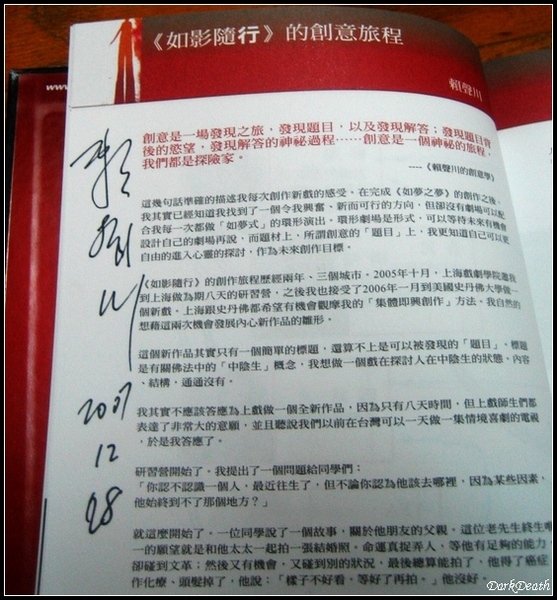 www
《如影隨行》的創意旅程
賴聲川
創意是一場發現之旅，發現題目，以及發現解答；發現題目背
後的慾望，發現解答的神祕過程……創意是一個神祕的旅程，
我們都是探險家。
----《賴聲川的創意學》
這幾句話準確的描述我每次創作新戲的感受。在完成《如夢之夢》的創作之後，
我其實已經知道我找到了一個令我興奮、新而可行的方向，但卻沒有劇場可以配
合我每一次都做「如夢式」的環形演出。環形劇場是形式，可以等待未來有機會
設計自己的劇場再說，而題材上，所謂創意的「題目」上，我更知道自己可以更
自由的進入心靈的探討，作為未來創作目標。
《如影隨行》的創作旅程歷經兩年、三個城市。2005年十月，上海戲劇學院邀我
到上海做為期八天的研習營，之後我也接受了2006年一月到美國史丹佛大學做一
個新戲。上海跟史丹佛都希望有機會觀摩我的「集體即興創作」方法，我自然的
想藉這兩次機會發展內心新作品的雛形。
這個新作品其實只有一個簡單的標題，還算不上是可以被發現的「題目」，標題
是有關佛法中的「中陰生」概念，我想做一個戲在探討人在中陰生的狀態，內容
、結構，通通沒有。
我其實不應該答應為上戲做一個全新作品，因為只有八天時間，但上戲師生們都
表達了非常大的意願，並且聽說我們以前在台灣可以一天做一集情境喜劇的電視
，於是我答應了。
研習營開始了。我提出了一個問題給同學們：
「你認不認識一個人，最近往生了，但不論你認為他該去哪裡，因為某些因素，
他始終到不了那個地方？」
就這麼開始了。一位同學說了一個故事，關於他朋友的父親。這位老先生終生唯
一的願望就是和他太太一起拍一張結婚照。命運真捉弄人，等他有足夠的能力，
卻碰到文革；然後又有機會，又碰到別的狀況，最後總算能拍了，他得了癌症
作化療、頭髮掉了，他說：「樣子不好看，等好了再拍。」他沒好。
賴聲川
2007
12
28
DarkDeath